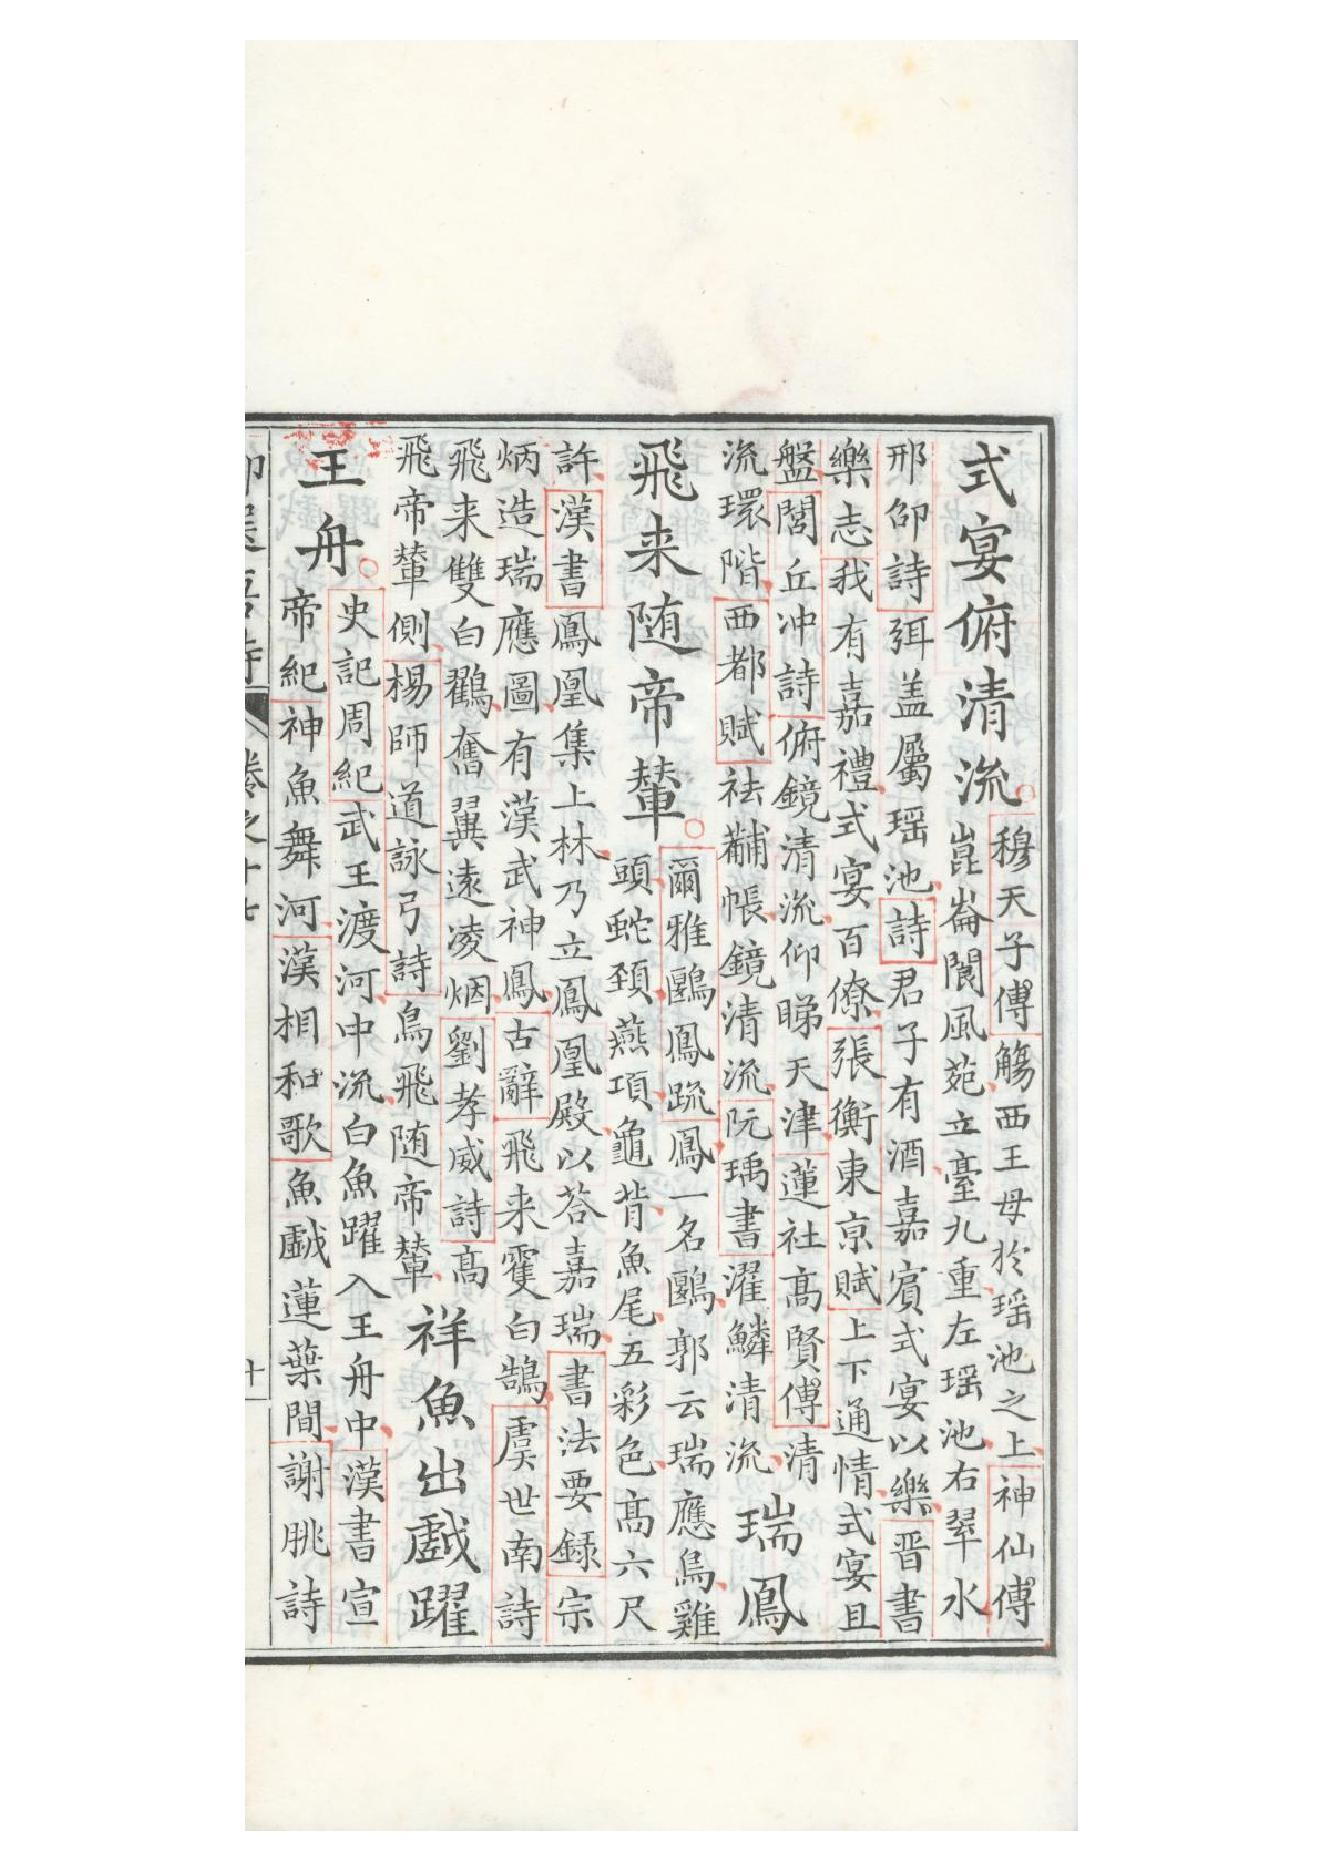 式宴俯清流
穆天子傳觴西王母於瑶池之上神仙傳
崑崙閬風苑立臺九重左瑶池右翠水
邢卲詩弭盖屬瑶池詩君子有酒嘉賓式宴以樂晋書
樂志我有嘉禮式宴百僚張衡東京賦上下通情式宴且
盤閭丘冲詩俯鏡清流仰睇天津蓮社髙賢傳清
流環階西都賦祛黼帳鏡清流阮瑀書濯鱗清流
瑞鳳
飛来随帝輦
爾雅鶠鳳䟽鳳一名鶠郭云瑞應鳥雞
頭蛇頸燕項龜背魚尾五彩色髙六尺
許漢書鳳凰集上林乃立鳳凰殿以荅嘉瑞書法要録宗
炳造瑞應圖有漢武神鳳古辭飛来䨇白鵠虞世南詩
飛来雙白鸖奮翼遠凌烟劉孝威詩髙
飛帝輦側楊師道詠弓詩鳥飛随帝輦
祥魚出戯躍
王舟
史記周紀武王渡河中流白魚躍入王舟中漢書宣
帝紀神魚舞河漢相和歌魚戯蓮葉間謝朓詩
卷之十七
十